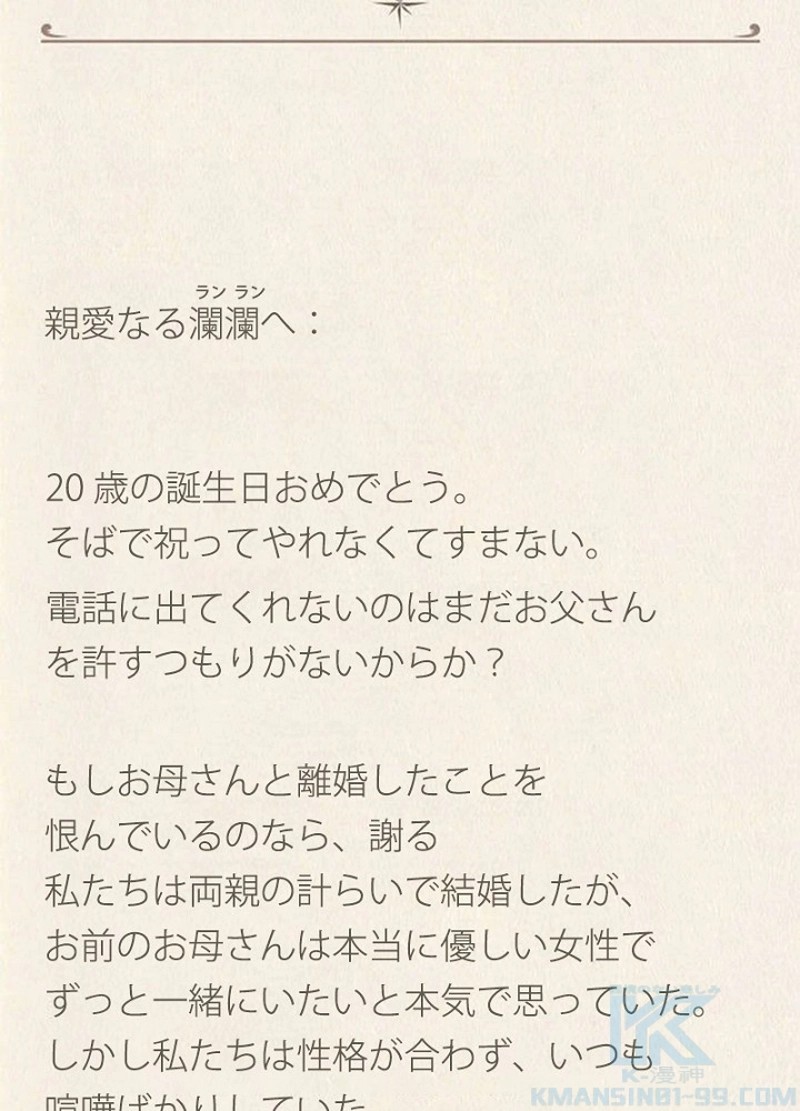 ラン ラン
親愛なる瀾瀾へ：
20 歳の誕生日おめでとう。
そばで祝ってやれなくてすまない。
電話に出てくれないのはまだお父さん
を許すつもりがないからか？
もしお母さんと離婚したことを
恨んでいるのなら、謝る
私たちは両親の計らいで結婚したが、
お前のお母さんは本当に優しい女性で
ずっと一緒にいたいと本気で思っていた。
しかし私たちは性格が合わず、いつも
喧嘩ばかりしていた
K-漫神
KMANSIN01-99.COM